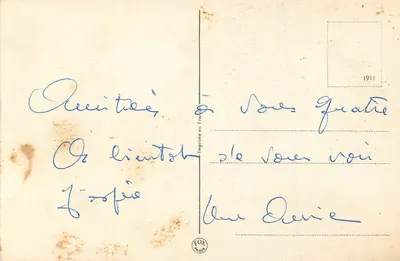 Amitiés à vous quatre
A bientôt de vous voir
Une Amie
1911
Imprimé en France
FOX